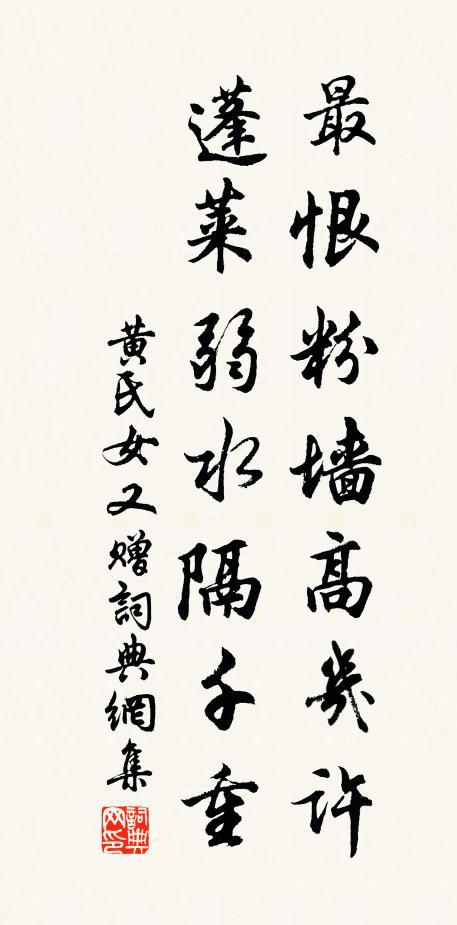 最恨粉墙高幾许
蓬莱弱水隔千重
黄氏女又赠詞典網集
詞典网印